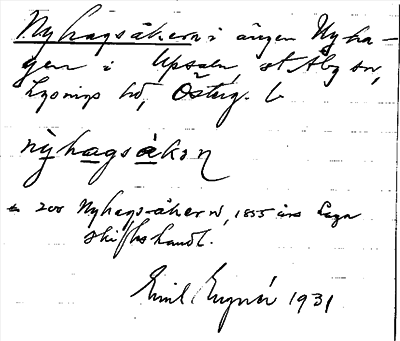 Nyhagsåkern i ängen Nyha-
gen i Upsala, st Åby sn,
Lysings hd, Östug. L
nyhagsåkọn
200 Nyhagsåkern, 1855 års Laga
skifteshandl.
Emil 1931